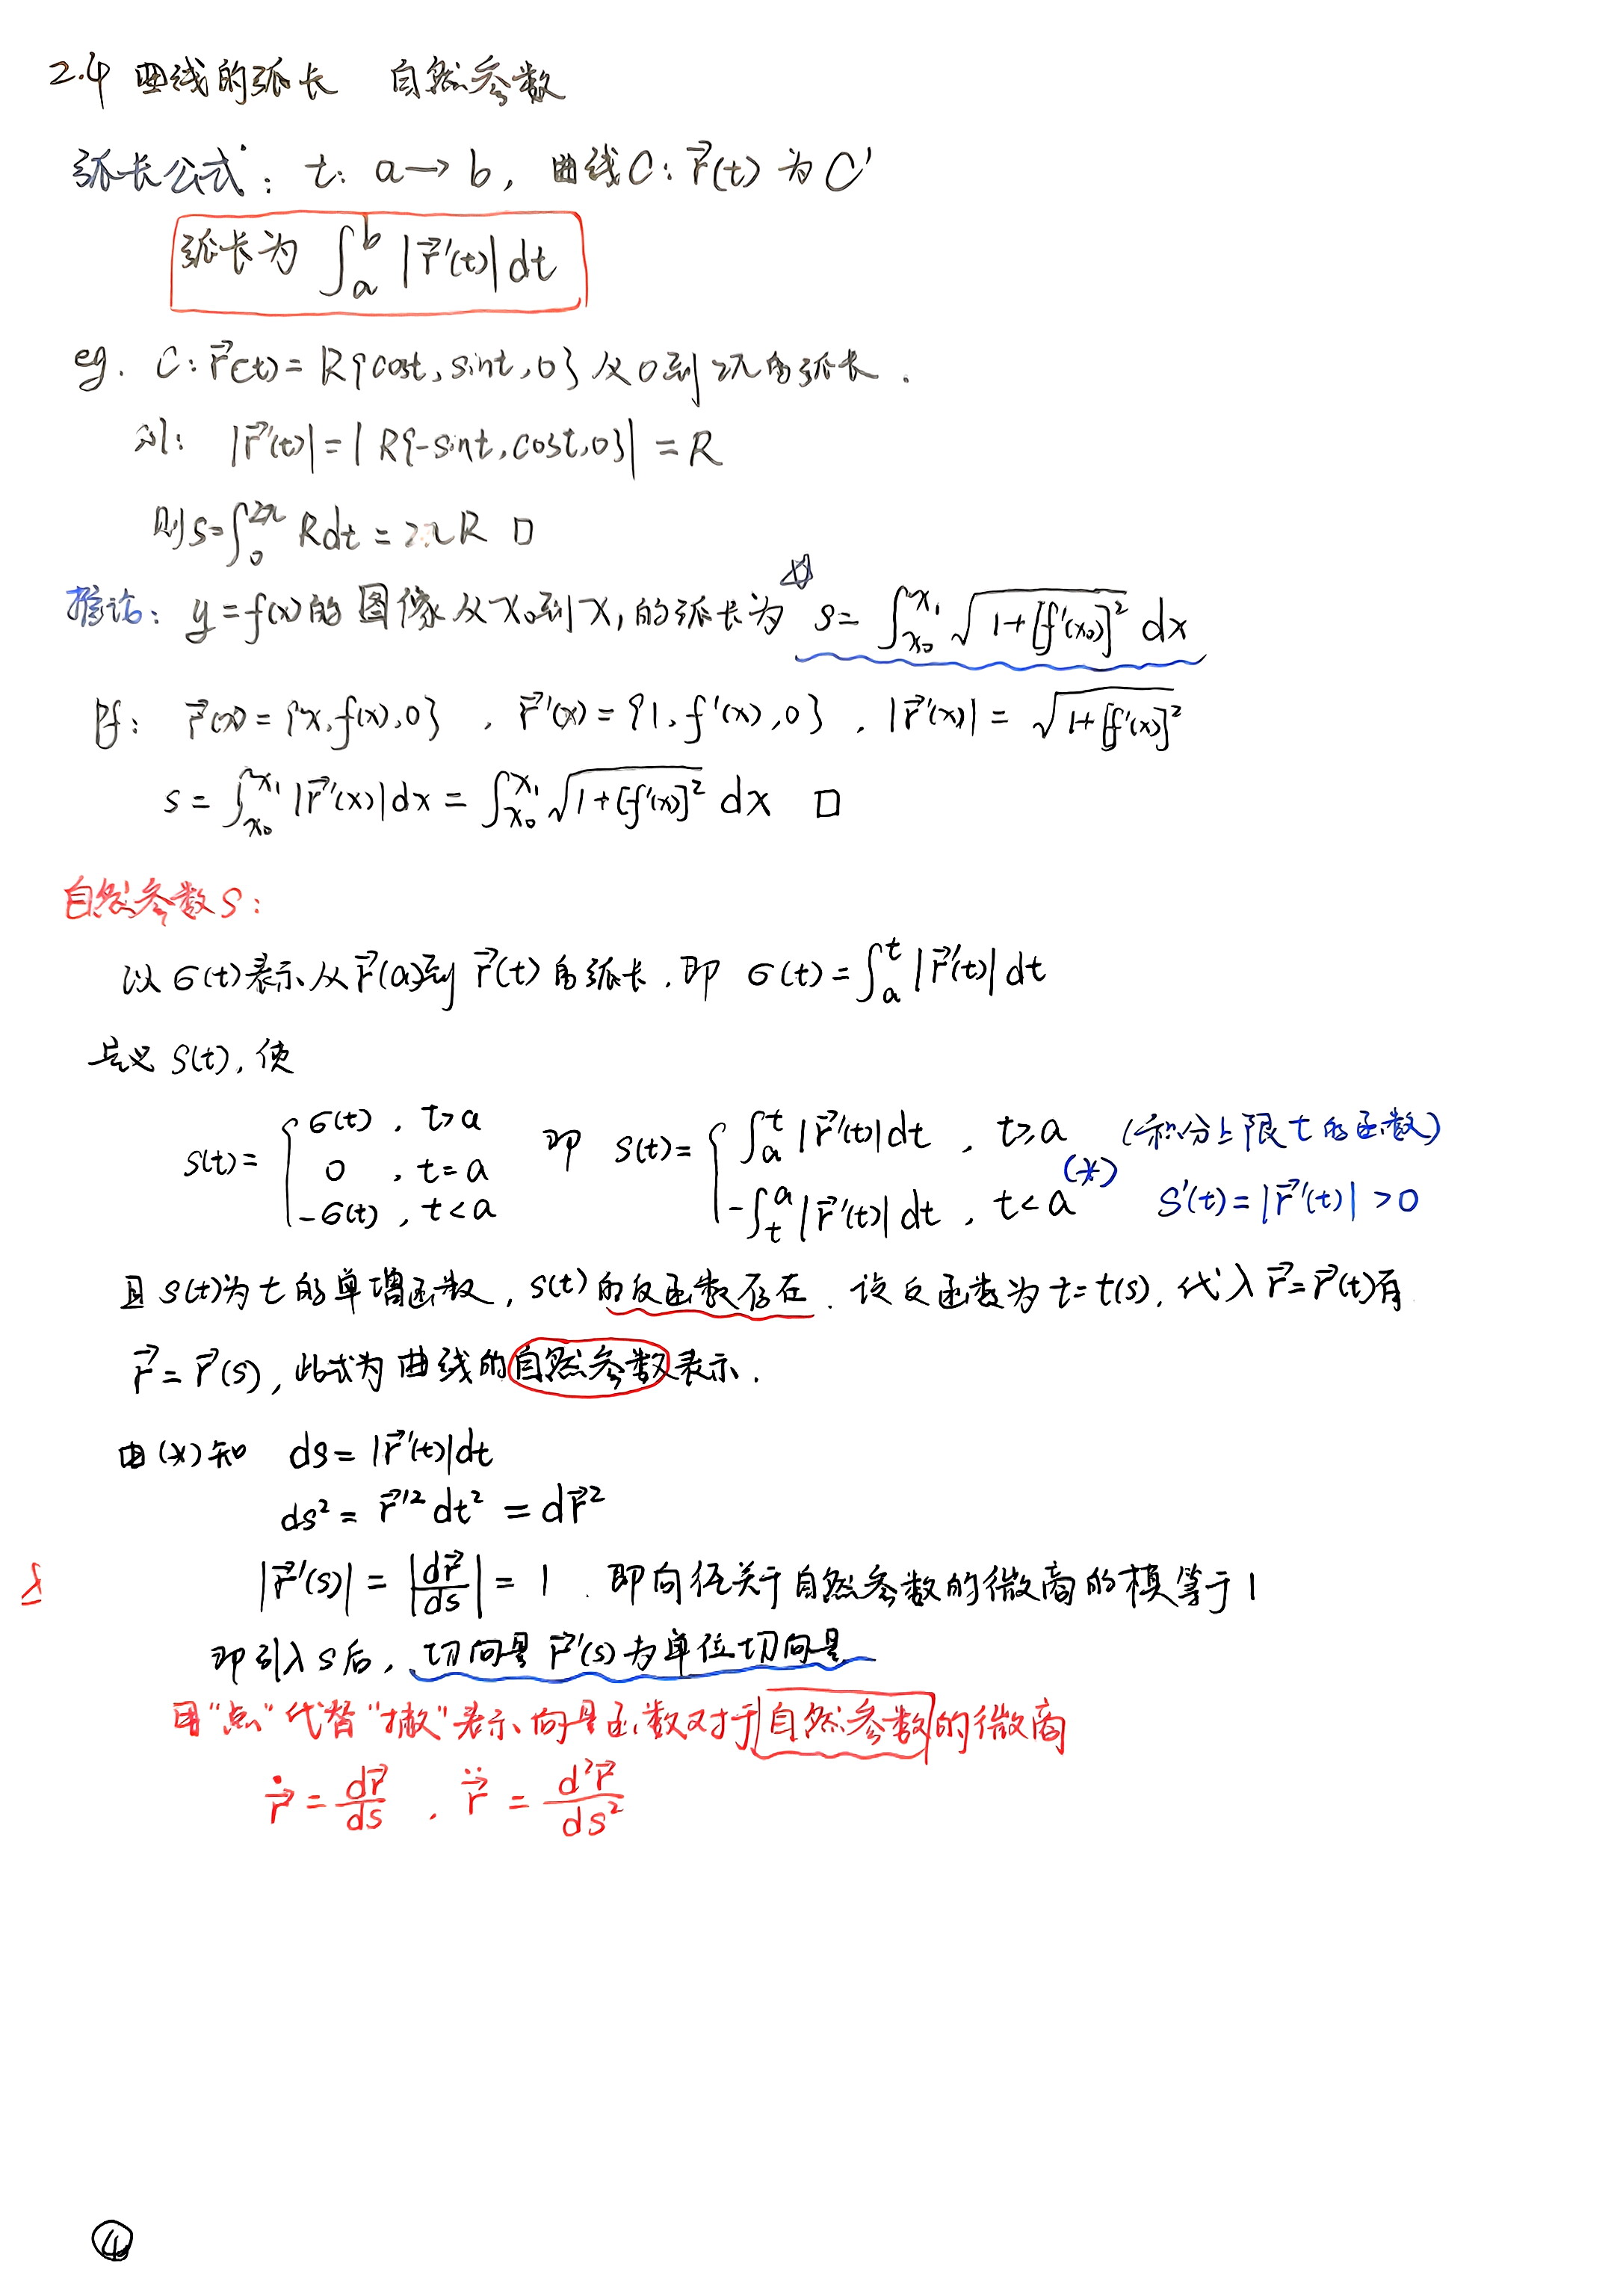 2.4 曲线的弧长 自然参数
弧长公式: t: a→b, 曲线C: r⃗(t) 为 C'
弧长为 ∫_a^b |r⃗'(t)| dt
eg. C: r⃗(t)=R{cost, sint, 0} 从0到2π的弧长.
|r⃗'(t)|=|R{-sint, cost, 0}|=R
则 s=∫_0^{2π} Rdt = 2πR □
推论: y=f(x)的图像从x₀到x₁的弧长为 s=∫_{x₀}^{x₁} √(1+[f'(x₀)]²) dx
Pf: r⃗(x)={x, f(x), 0}, r⃗'(x)={1, f'(x), 0}, |r⃗'(x)|=√(1+[f'(x)]²)
s=∫_{x₀}^{x₁} |r⃗'(x)|dx=∫_{x₀}^{x₁} √(1+[f'(x)]²) dx □
自然参数S:
以 σ(t)表示从r⃗(a)到r⃗(t)的弧长, 即 σ(t)=∫_a^t |r⃗'(t)| dt
定义 S(t), 使
S(t)={σ(t), t>a 0, t=a -σ(t), t<a 即 S(t)={∫_a^t |r⃗'(t)|dt, t≥a -∫_t^a |r⃗'(t)|dt, t<a (*) (积分上限t的函数) S'(t)=|r⃗'(t)|>0
且S(t)为t的单增函数, S(t)的反函数存在. 设反函数为t=t(s), 代入r⃗=r⃗(t)有
r⃗=r⃗(s), 此式为曲线的自然参数表示.
由(*)知 ds=|r⃗'(t)|dt
ds²=r⃗'²dt²=dr⃗²
|r⃗'(s)|=|dr⃗/ds|=1. 即向径关于自然参数的微商的模等于1
即引入s后, 切向量r⃗'(s)为单位切向量
用"点"代替"撇"表示向量函数对于自然参数的微商
ṙ⃗=dr⃗/ds, r̈⃗=d²r⃗/ds²
④